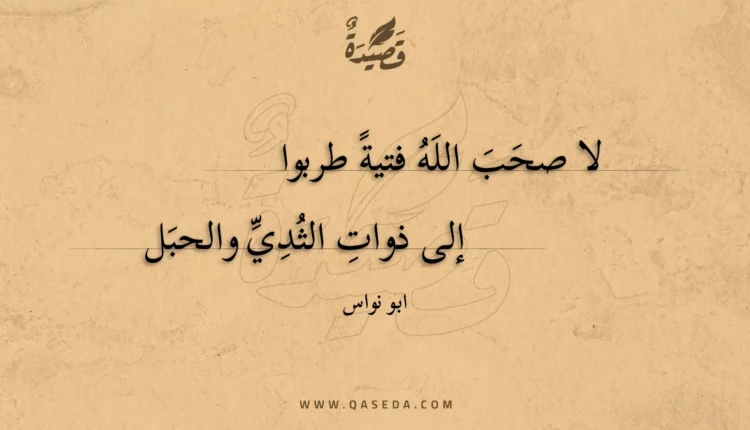 قَصِيْدَةٌ
لا صحَبَ اللَهُ فتيةً طربوا
إلى ذواتِ الثُدِيِّ والحبَل
ابو نواس
WWW.QASEDA.COM